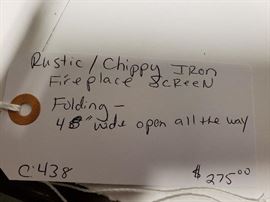 Rustic / Chippy Iron
Fireplace Screen
Folding –
" wide open all the way
C: 438
$275.00